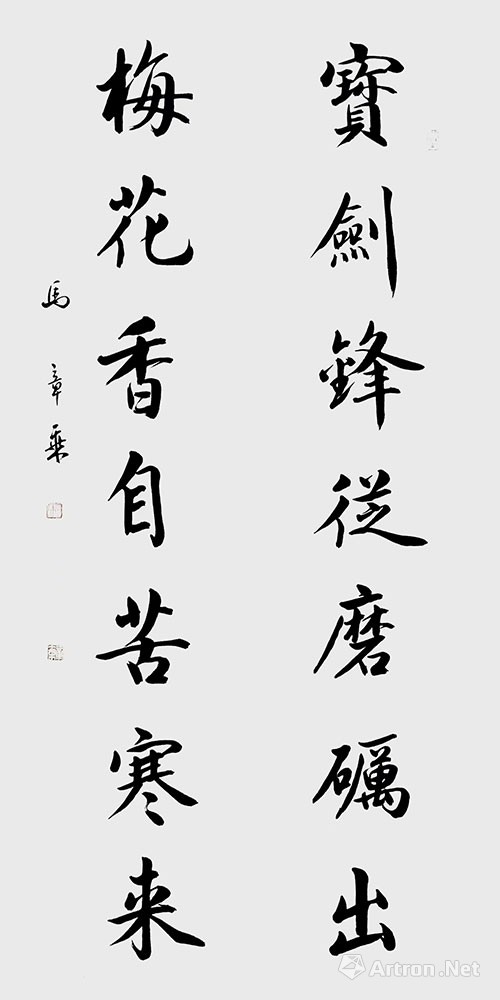 寶劍鋒從磨礪出
梅花香自苦寒来
馬章乘
Artron.Net